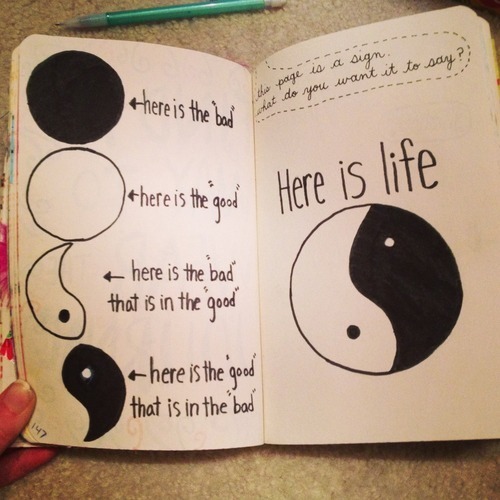 here is the "bad"
here is the "good"
here is the "bad"
that is in the "good"
here is the "good"
that is in the "bad"
147
this page is a sign.
what do you want it to say?
Here is life